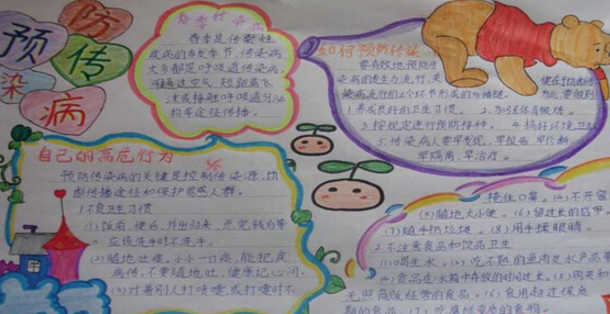 预防
传
染
病
春季传染病
春季是传染性
疾病的高发季节,传染病
大多都是呼吸道传染病,
可通过空气、短距离飞
沫或接触呼吸道分泌
物等途径传播。
如何预防传染
要有效地预防传
染病的发生和流行,关
1.养成良好的卫生习惯。 2.加强体育锻炼。
3.按规定进行预防接种。 4.搞好环境卫生
5.传染病人要早发现,早报告,早诊断
早隔离,早治疗。
自己的高危行为
预防传染病的关键是控制传染源、切
断传播途径和保护易感人群。
1.不良卫生习惯
(1)饭前、便后、外出归来、点完钱的等
应洗手时不洗手。
(2)随地吐痰,小小一口痰,能把疾
病传,不要随地吐,健康记心间。
(3)对着别人打喷嚏,或打喷嚏时不
捂住口鼻。(4)不开窗
(5)随地大小便。(6)留过长的指甲
(7)随手扔垃圾。(8)用手揉眼睛。
2.不注意食品和饮品卫生
(1)喝生水。(2)吃不熟的鱼肉及水产品等
无照商贩经营的食品。(6)食用超过保质
期的食品。(7)吃腐烂变质的食物。